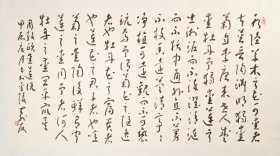 水陸草木之花可愛者甚
蕃晉陶淵明獨愛
菊自李唐來世人甚愛
牡丹予獨愛蓮之
出淤泥而不染濯清漣
而不妖中通外直不蔓
不枝香遠益清亭亭
淨植可遠觀而不可褻
玩焉予謂菊花之隱逸者
也牡丹花之富貴者
也蓮花之君子者也噫
菊之愛陶後鮮有聞
蓮之愛同予者何人
牡丹之愛宜乎眾矣
周敦頤愛蓮說
甲辰 月 於金陵